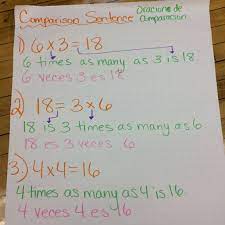 Comparison Sentence Oraciones de
comparación
1) 6 x 3 = 18
6 times as many as 3 is 18.
6 veces 3 es 18
2) 18 = 3 x 6
18 is 3 times as many as 6
18 es 3 veces 6
3) 4 x 4 = 16
4 times as many as 4 is 16.
4 veces 4 es 16